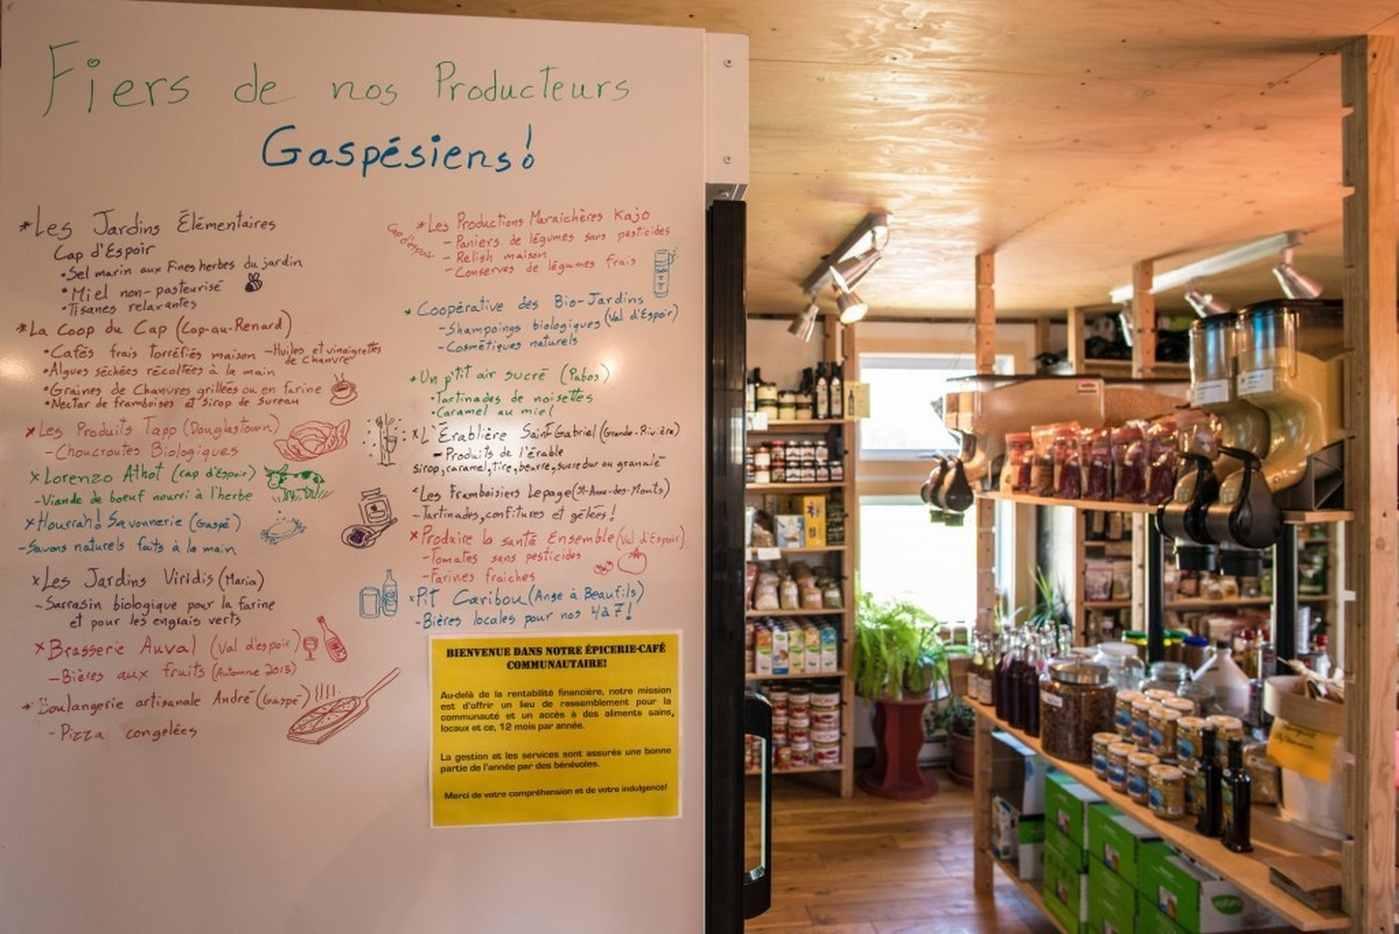 Fiers de nos Producteurs
Gaspésiens!
*Les Jardins Élémentaires
Cap d'Espoir
•Sel marin aux Fines herbes du jardin
•Miel non-pasteurisé
•Tisanes relaxantes
*La Coop du Cap (Cap-au-Renard)
•Cafés frais torréfiés maison -Huiles et vinaigrettes
de Chanvre
•Algues séchées récoltées à la main
•Graines de Chanvres grillées ou en farine
•Nectar de framboises et Sirop de Sureau
x Les Produits Tapp (Douglastown)
- Choucroutes Biologiques
x Lorenzo Athot (Cap d'Espoir)
-Viande de boeuf nourri à l'herbe
x Hourrah! Savonnerie (Gaspé)
-Savons naturels faits à la main
x Les Jardins Viridis (Maria)
- Sarrasin biologique pour la farine
et pour les engrais verts
x Brasserie Auval (Val d'espoir)
- Bières aux fruits (Automne 2015)
* Boulangerie artisanale André (Gaspé)
- Pizza congelées
*Les Productions Maraichères Kajo
Cap d'espoir
- Paniers de légumes sans pesticides
- Relish maison
- Conserves de légumes frais
* Coopérative des Bio-Jardins
(Val d'Espoir)
-Shampoings biologiques
-Cosmétiques naturels
*Un p'tit air sucré (Pabos)
-Tartinades de noisettes
•Caramel au miel
x L'Érablière Saint-Gabriel (Grande-Rivière)
- Produits de l'érable
sirop, caramel, tire, beurre, sucre dur ou granulé
*Les Framboisiers Lepage (St-Anne-des-Monts)
-Tartinades, confitures et gelées!
x Produire la santé Ensemble (Val d'Espoir)
-Tomates sans pesticides
-Farines fraiches
x Pit Caribou (Anse à Beaufils)
-Bières locales pour nos 4 à 7!
BIENVENUE DANS NOTRE ÉPICERIE-CAFÉ
COMMUNAUTAIRE!
Au-delà de la rentabilité financière, notre mission
est d'offrir un lieu de rassemblement pour la
communauté et un accès à des aliments sains,
locaux et ce, 12 mois par année.
La gestion et les services sont assurés une bonne
partie de l'année par des bénévoles.
Merci de votre compréhension et de votre indulgence!